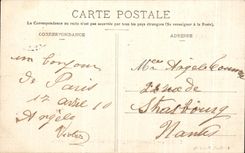 CARTE POSTALE
La Correspondance au recto n'est pas acceptée par tous les pays étrangers (Se renseigner à la Poste)
CORRESPONDANCE
ADRESSE
un bonjour
de Paris
17 avril 10
Angèle
Mlle Angèle
24 rue de
Strasbourg
Nantes